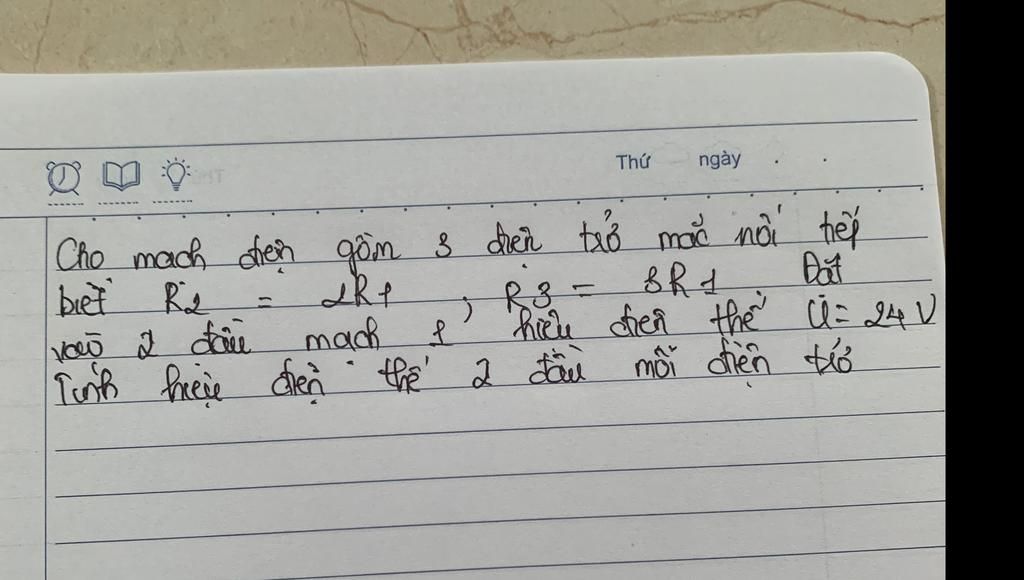 Thứ ngày
Cho mạch điện gồm 3 điện trở mắc nối tiếp
biết R2 = 2R1 , R3 = 3R1 Đặt
vào 2 đầu mạch 1 hiệu điện thế U = 24 V
Tính hiệu điện thế 2 đầu mỗi điện trở